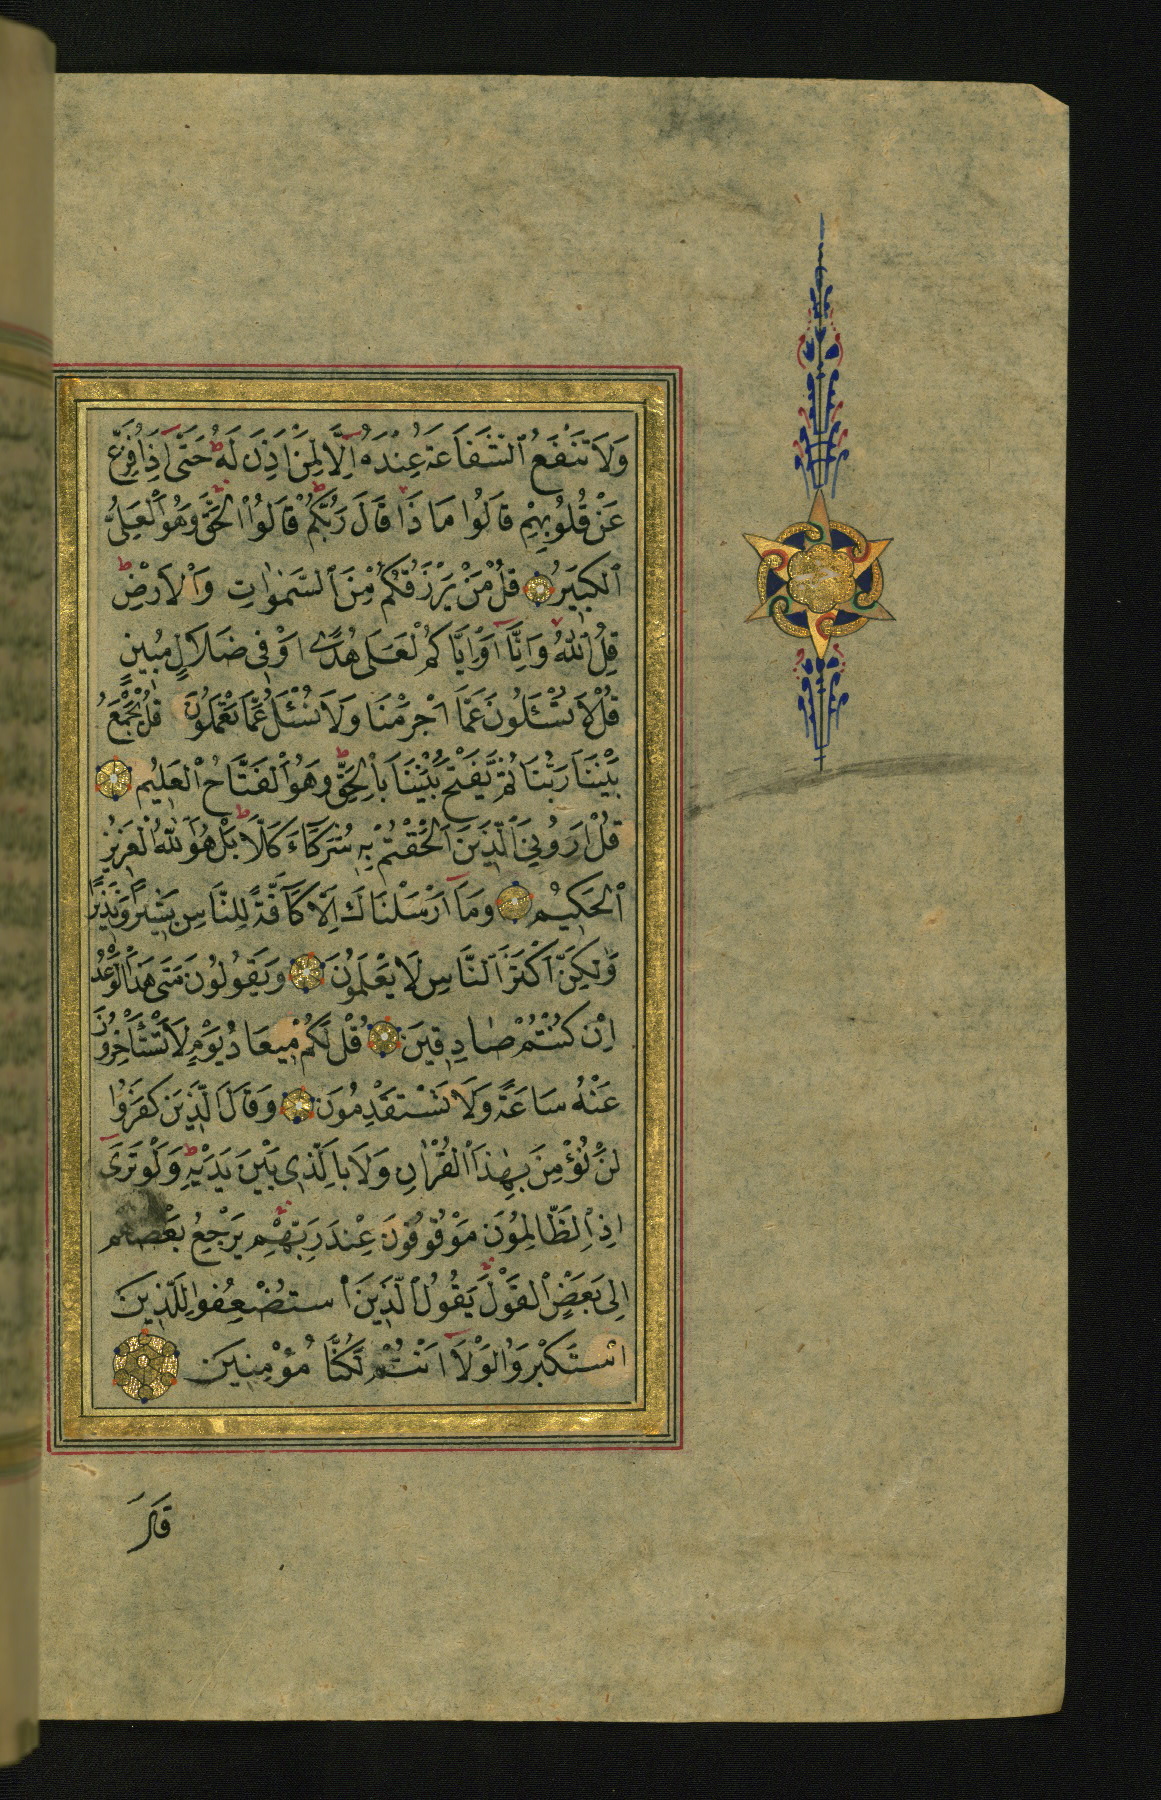 وَلَا تَنْفَعُ ٱلشَّفَاعَةُ عِنْدَهُ اِلَّا لِمَنْ اَذِنَ لَهُ حَتَّى اِذَا فُزِّعَ
عَنْ قُلُوبِهِمْ قَالُوا مَاذَا قَالَ رَبُّكُمْ قَالُوا ٱلْحَقَّ وَهُوَ ٱلْعَلِىُّ
ٱلْكَبِيرُ قُلْ مَنْ يَرْزُقُكُمْ مِنَ ٱلسَّمٰوَاتِ وَٱلْاَرْضِ
قُلِ ٱللّٰهُ وَاِنَّا اَوْ اِيَّاكُمْ لَعَلَى هُدًى اَوْ فِى ضَلَالٍ مُبِينٍ
قُلْ لَا تُسْئَلُونَ عَمَّا اَجْرَمْنَا وَلَا نُسْئَلُ عَمَّا تَعْمَلُونَ قُلْ يَجْمَعُ
بَيْنَنَا رَبُّنَا ثُمَّ يَفْتَحُ بَيْنَنَا بِالْحَقِّ وَهُوَ ٱلْفَتَّاحُ ٱلْعَلِيمُ
قُلْ اَرُونِيَ ٱلَّذِينَ اَلْحَقْتُمْ بِهِ شُرَكَاءَ كَلَّا بَلْ هُوَ ٱللّٰهُ ٱلْعَزِيزُ
ٱلْحَكِيمُ وَمَا اَرْسَلْنَاكَ اِلَّا كَافَّةً لِلنَّاسِ بَشِيرًا وَنَذِيرًا
وَلٰكِنَّ اَكْثَرَ ٱلنَّاسِ لَا يَعْلَمُونَ وَيَقُولُونَ مَتَى هٰذَا ٱلْوَعْدُ
اِنْ كُنْتُمْ صَادِقِينَ قُلْ لَكُمْ مِيعَادُ يَوْمٍ لَا تَسْتَأْخِرُونَ
عَنْهُ سَاعَةً وَلَا تَسْتَقْدِمُونَ وَقَالَ ٱلَّذِينَ كَفَرُوا
لَنْ نُؤْمِنَ بِهٰذَا ٱلْقُرْاٰنِ وَلَا بِالَّذِى بَيْنَ يَدَيْهِ وَلَوْ تَرَى
اِذِ ٱلظَّالِمُونَ مَوْقُوفُونَ عِنْدَ رَبِّهِمْ يَرْجِعُ بَعْضُهُمْ
اِلَى بَعْضٍ ٱلْقَوْلَ يَقُولُ ٱلَّذِينَ ٱسْتُضْعِفُوا لِلَّذِينَ
ٱسْتَكْبَرُوا لَوْلَا اَنْتُمْ لَكُنَّا مُؤْمِنِينَ
قَالَ